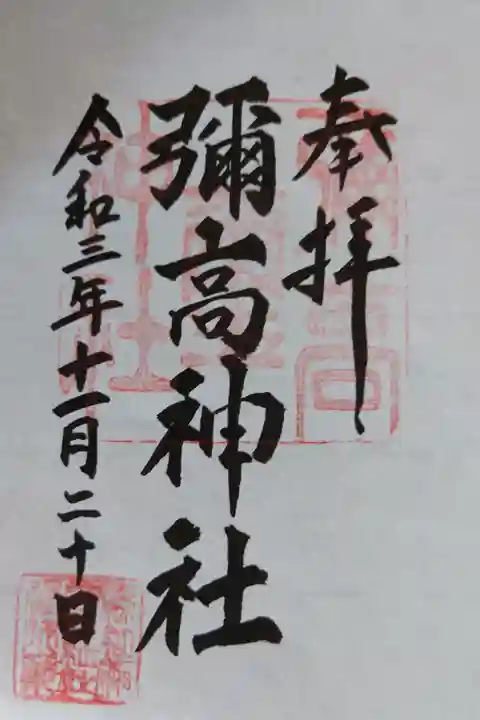 奉拝
彌高神社
令和三年十一月二十日